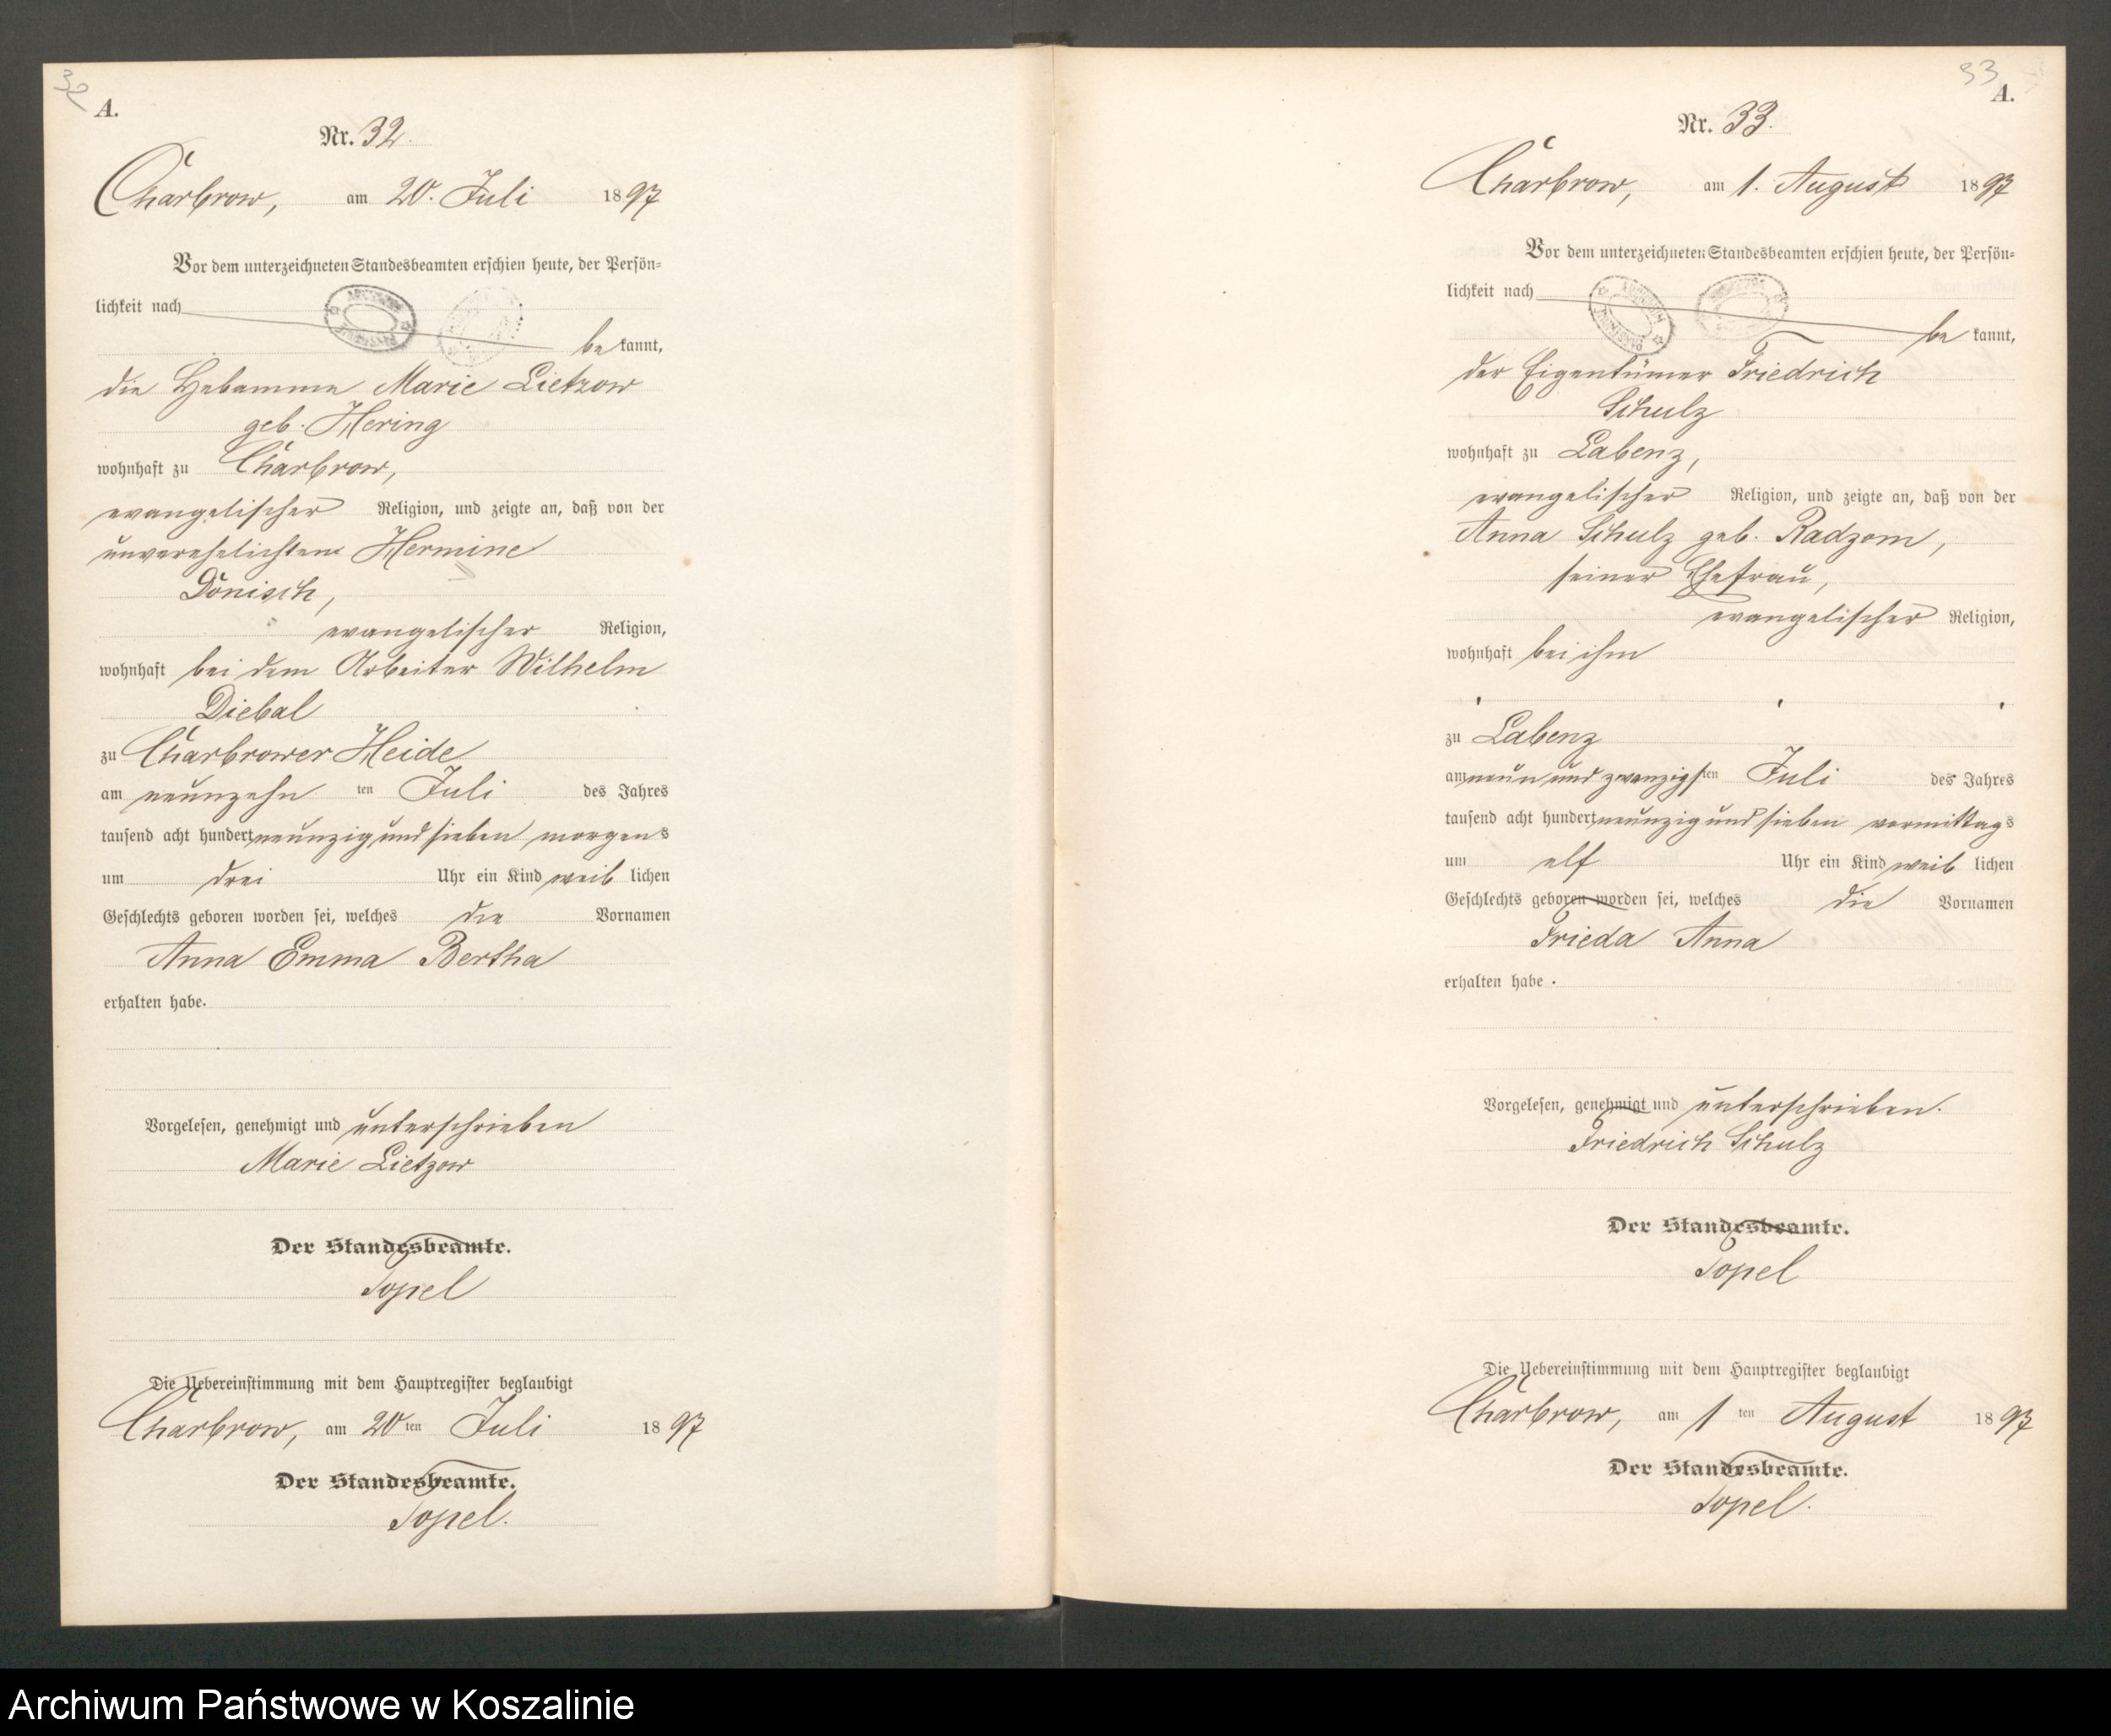 32
A.
Nr. 32.
Charbrow, am 20. Juli 1897
Vor dem unterzeichneten Standesbeamten erschien heute, der Persön-
lichkeit nach
be kannt,
die Hebamme Marie Lietzow
geb. Hering
wohnhaft zu Charbrow,
evangelischer Religion, und zeigte an, daß von der
unverehelichten Hermine
Dönisch,
evangelischer Religion,
wohnhaft bei dem Arbeiter Wilhelm
Diebal
zu Charbrower Heide
am neunzehn ten Juli des Jahres
tausend acht hundert neunzig und sieben morgens
um drei Uhr ein Kind weib lichen
Geschlechts geboren worden sei, welches die Vornamen
Anna Emma Bertha
erhalten habe.
Vorgelesen, genehmigt und unterschrieben
Marie Lietzow
Der Standesbeamte.
Topel
Die Uebereinstimmung mit dem Hauptregister beglaubigt
Charbrow, am 20 ten Juli 1897
Der Standesbeamte.
Topel.
33
A.
Nr. 33.
Charbrow, am 1. August 1897
Vor dem unterzeichneten Standesbeamten erschien heute, der Persön-
lichkeit nach
be kannt,
der Eigentümer Friedrich
Schulz
wohnhaft zu Labenz,
evangelischer Religion, und zeigte an, daß von der
Anna Schulz geb. Radzom,
seiner Ehefrau,
evangelischer Religion,
wohnhaft bei ihm
zu Labenz
am neun und zwanzigsten Juli des Jahres
tausend acht hundert neunzig und sieben vormittags
um elf Uhr ein Kind weib lichen
Geschlechts geboren worden sei, welches die Vornamen
Frieda Anna
erhalten habe.
Vorgelesen, genehmigt und unterschrieben.
Friedrich Schulz
Der Standesbeamte.
Topel
Die Uebereinstimmung mit dem Hauptregister beglaubigt
Charbrow, am 1 ten August 1897
Der Standesbeamte.
Topel.
Archiwum Państwowe w Koszalinie